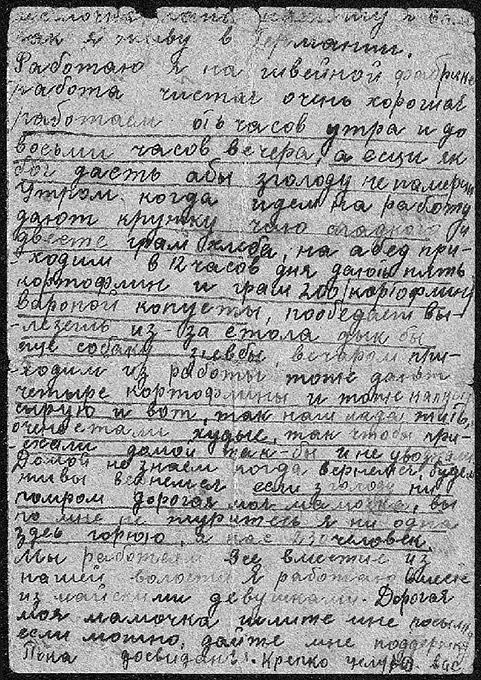 как я живу в Германии.
Работаю я на швейной фабрике
работа чистая очень хорошая
работаем от 6 часов утра и до
восьми часов вечера, а есци як
бог дасть абы зголоду не памерци
Утром когда идем на работу
дают кружку чаю сладкого и
двесте грам хлеба, на абед при-
ходим в 12 часов дня дают пять
картофлин и грам 200 картофлину
вароной копусты, пообедаеш вы-
лезешь из-за стола дык бы
еще собаку з'евбы, вечаром при-
ходим из работы, тоже дают
четыре кортофлины и тоже капусту
сырую и вот, так нам жить,
очень стали худые, так чтобы при-
ехали домой так-бы и не увожали
Домой не знаем когда вернемся, будем
живы вернемся если з голоду ни
помром дорогая моя мамочка, вы
по мне не журитесь я ни одна
здесь горюю, а нас человек.
Мы работаем все вместе из
нашей волости я работаю вместе
из девушками. Дорогая
моя мамочка шлите мне посылку
если можно, дайте мне поддержку
Пока досвидань! Крепко целую вас